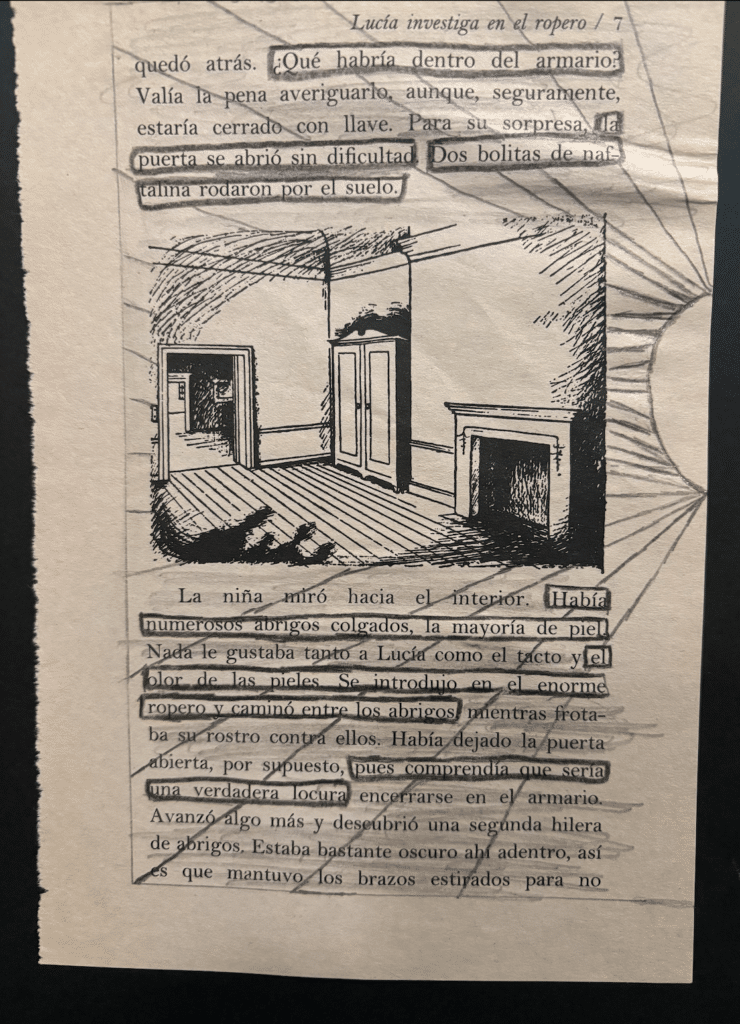 Lucía investiga en el ropero / 7
quedó atrás. ¿Qué habría dentro del armario?
Valía la pena averiguarlo, aunque, seguramente,
estaría cerrado con llave. Para su sorpresa, la
puerta se abrió sin dificultad. Dos bolitas de naf-
talina rodaron por el suelo.
La niña miró hacia el interior. Había
numerosos abrigos colgados, la mayoría de piel.
Nada le gustaba tanto a Lucía como el tacto y el
olor de las pieles. Se introdujo en el enorme
ropero y caminó entre los abrigos, mientras frota-
ba su rostro contra ellos. Había dejado la puerta
abierta, por supuesto, pues comprendía que sería
una verdadera locura encerrarse en el armario.
Avanzó algo más y descubrió una segunda hilera
de abrigos. Estaba bastante oscuro ahí adentro, así
es que mantuvo los brazos estirados para no